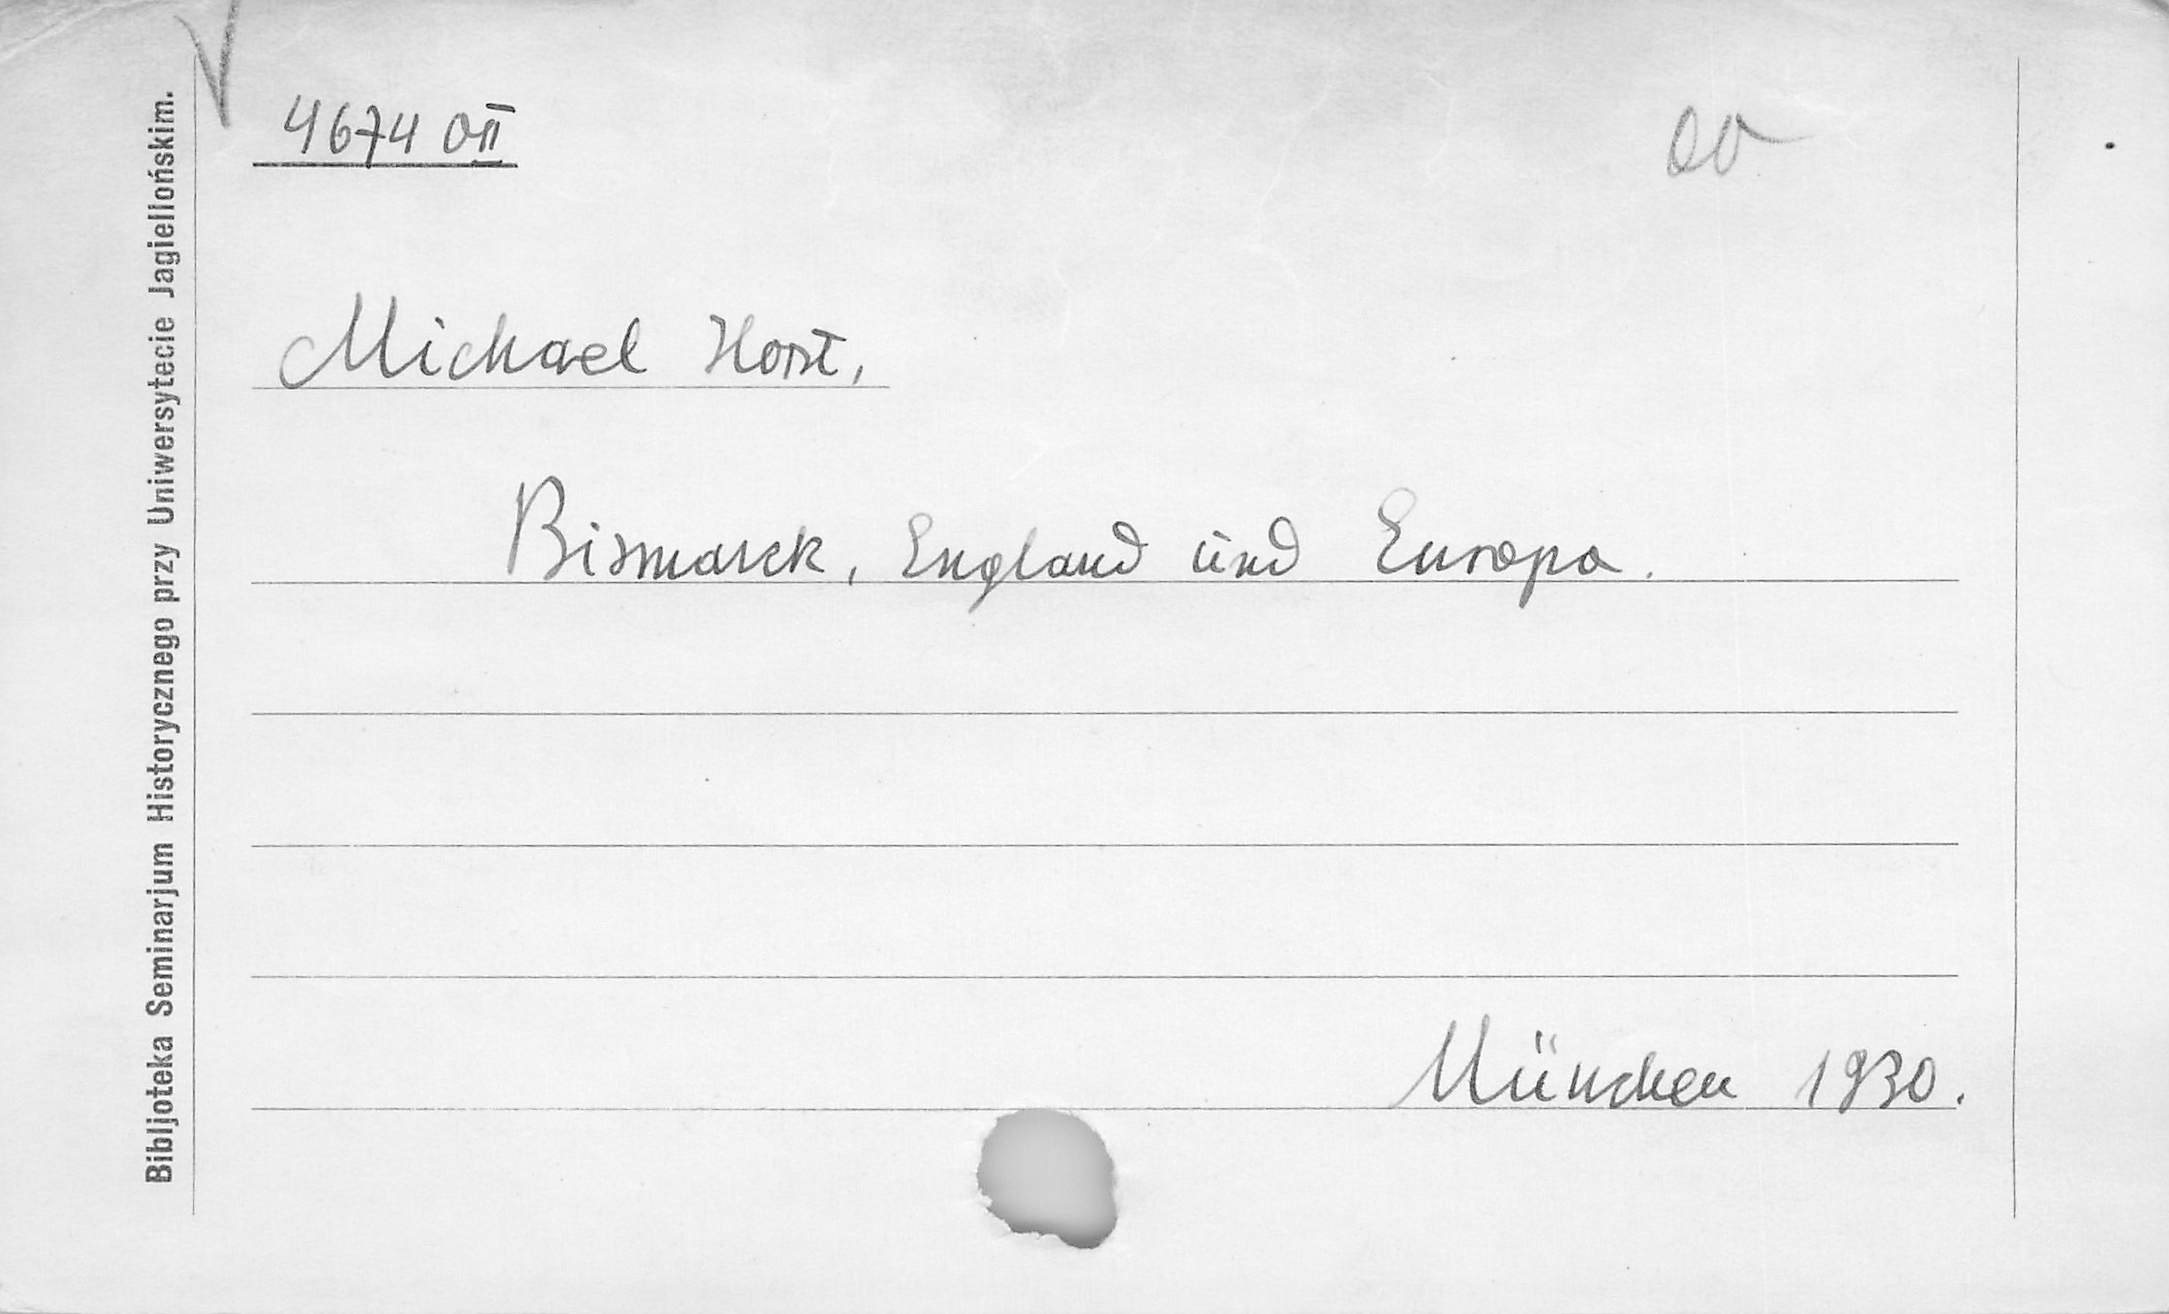 4674 OII
Michael Horst,
Bismarck, England und Europa.
München 1930.
Bibljoteka Seminarjum Historycznego przy Uniwersytecie Jagiellońskim.